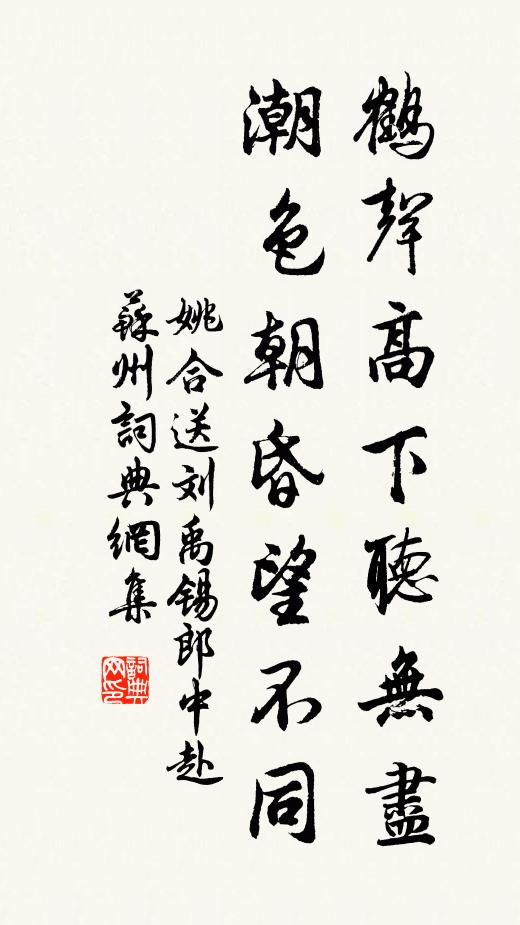 鶴聲高下聽無盡
潮色朝昏望不同
姚合送刘禹錫郎中赴
蘇州詞典網集
詞典网印